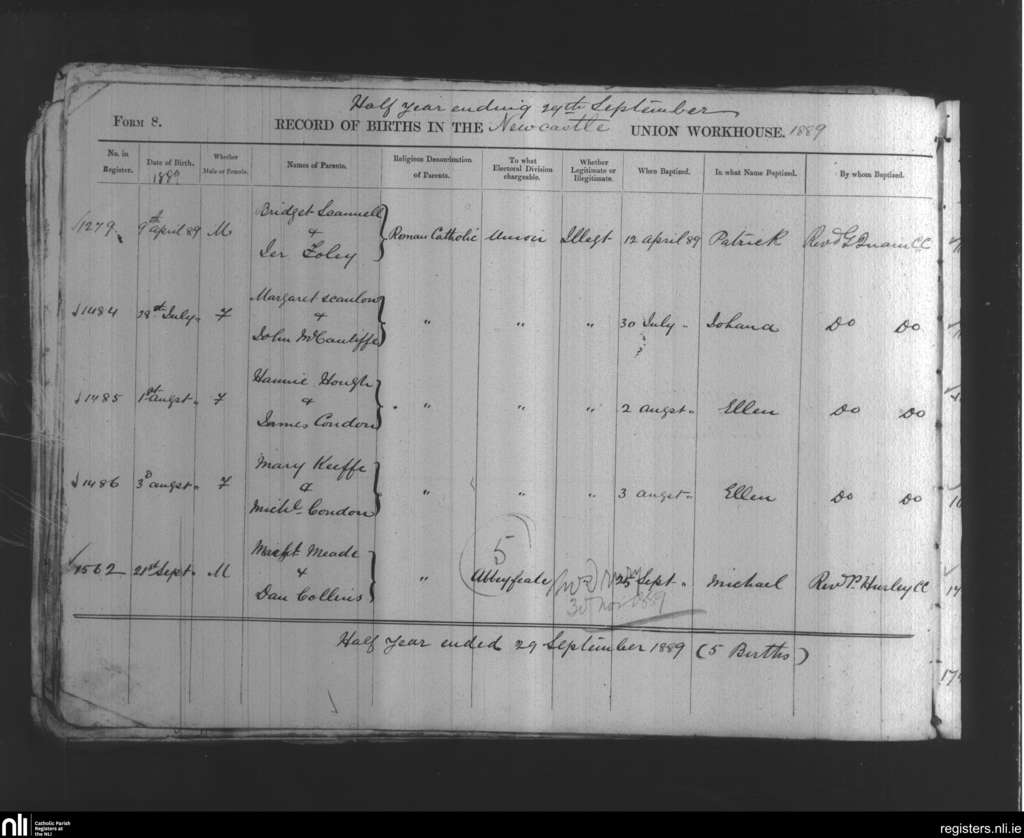 Half year ending 29th September
FORM 8. RECORD OF BIRTHS IN THE Newcastle UNION WORKHOUSE. 1889
No. in Register. Date of Birth. 1889 Whether Male or Female. Names of Parents. Religious Denomination of Parents. To what Electoral Division chargeable. Whether Legitimate or Illegitimate. When Baptized. In what Name Baptized. By whom Baptized.
Bridget Scannell
1279 9th April 89 M & Roman Catholic Union Illegt 12 April 89 Patrick Revd G Quain CC
Jer Foley
Margaret Scanlon
1484 28th July " F & " " " 30 July " Johana Do Do
John McCauliffe
Hannie Hough
1485 1st augst " F & " " " 2 augst " Ellen Do Do
James Condon
Mary Keeffe
1486 3d augst " F & " " " 3 augst " Ellen Do Do
Michl Condon
5
Meade
1562 21st Sept " M & " Abbeyfeale 25 Sept " Michael Revd P. Hurley CC
Dan Collins
30 Nov 1889
Half Year ended 29 September 1889 (5 Births)
nli Catholic Parish Registers at the NLI
registers.nli.ie